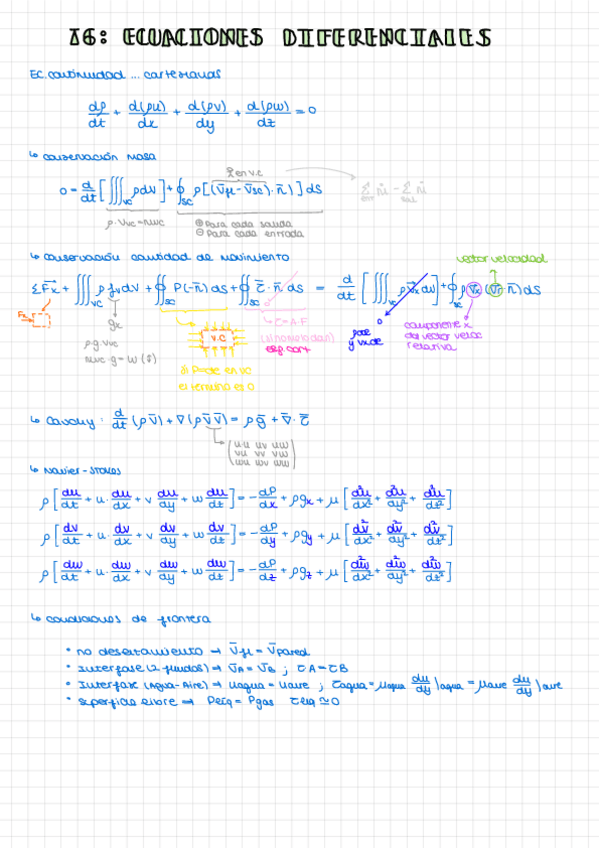 J6: ECUACIONES DIFERENCIALES
EC.continuidad ... cartesianas
dρ/dt + d(ρu)/dx + d(ρv)/dy + d(ρw)/dz = 0
↳ conservación masa
x̄ en v.c
0 = d/dt [∭vc ρdv] + ∮sc ρ[(v̄fl - v̄sc)·n̄)] ds
Σent ṁ - Σsal ṁ
ρ·Vvc = mvc
⊕ Para cada salida
⊖ Para cada entrada
↳ conservación cantidad de movimiento
vector velocidad
ΣF̄x + ∭vc ρ fv dv + ∮sc P(-n̄) ds + ∮sc τ̄·n̄ ds = d/dt [∭vc ρ v̄x dv] + ∮sc ρ(v̄x)(v̄r·n̄) ds
Fx
gx
ρ·g·Vvc
mvc·g = W(S)
v.c
si P=cte en vc
el término es 0
τ = A·F
(si nos lo dan)
esf. cort
0
ρcte
y vx cte
componente x
del vector veloc
relativa
↳ Cauchy: d/dt (ρv̄) + ∇(ρv̄v̄) = ρḡ + ∇̄·τ̄
(uu uv uw
vu vv vw
wu wv ww)
↳ Navier-Stokes
ρ[du/dt + u·du/dx + v du/dy + w du/dt] = -dP/dx + ρgx + μ[d²u/dx² + d²u/dy² + d²u/dt²]
ρ[dv/dt + u·dv/dx + v dv/dy + w dv/dt] = -dP/dy + ρgy + μ[d²v/dx² + d²v/dy² + d²v/dt²]
ρ[dw/dt + u·dw/dx + v dw/dy + w dw/dt] = -dP/dz + ρgz + μ[d²w/dx² + d²w/dy² + d²w/dt²]
↳ condiciones de frontera
• no deslizamiento → v̄fl = v̄pared
• Interfase (2 fluidos) → v̄A = v̄B ; τA = τB
• Interfase (Agua-Aire) → uagua = uaire ; τagua = μagua du/dy |agua = μaire du/dy |aire
• superficie libre → Plíq = Pgas τlíq ≃ 0